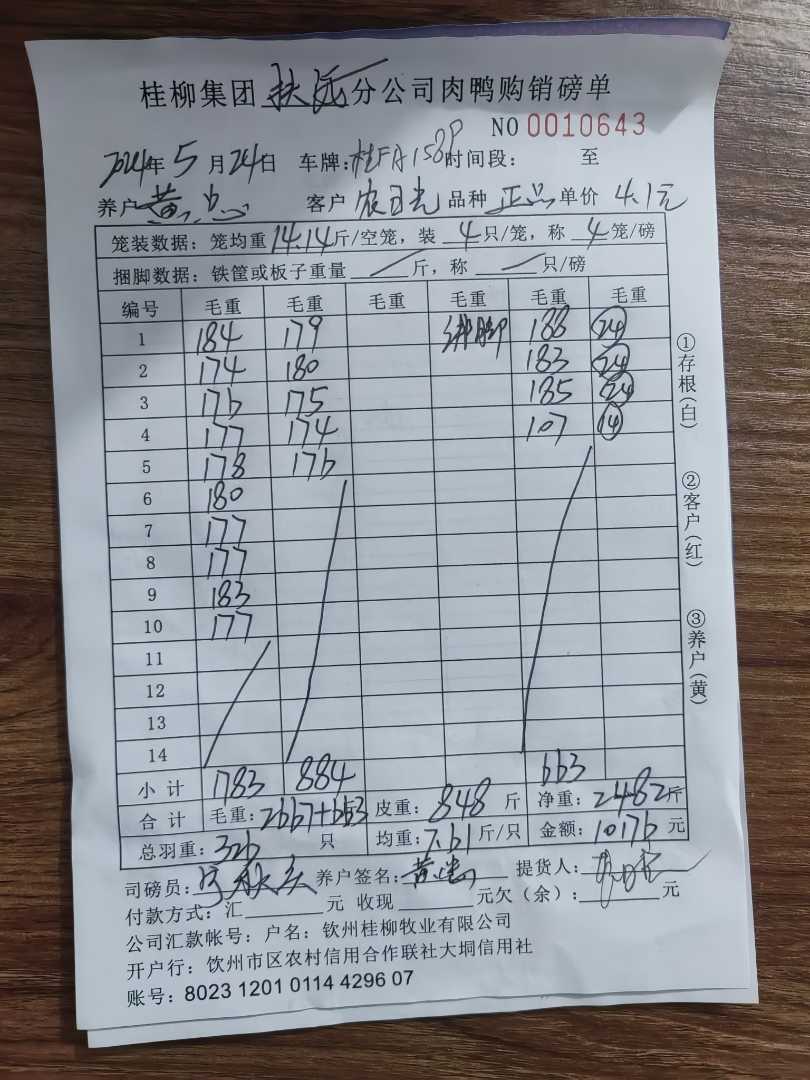 桂柳集团扶绥分公司肉鸭购销磅单
NO 0010643
2024年5月24日 车牌:桂FA158P时间段: 至
养户 黄 客户 农日光 品种 正品 单价 4.1元
笼装数据:笼均重14.14斤/空笼,装 4 只/笼,称 4 笼/磅
捆脚数据:铁筐或板子重量 斤,称 只/磅
编号 毛重 毛重 毛重 毛重 毛重 毛重
1 184 179 绑脚 188 24
2 174 180 183 24
3 176 175 185 24
4 177 174 107 14
5 178 176
6 180
7 177
8 177
9 183
10 177
11
12
13
14
小计 1783 884 663
合计 毛重:2667+663 皮重:848 斤 净重:2482斤
总羽重:326 只 均重:7.61斤/只 金额:10176元
司磅员: 养户签名:黄 提货人:
付款方式:汇 元 收现 元欠(余): 元
公司汇款帐号:户名:钦州桂柳牧业有限公司
开户行:钦州市区农村信用合作联社大垌信用社
账号:8023 1201 0114 4296 07
①存根(白)
②客户(红)
③养户(黄)